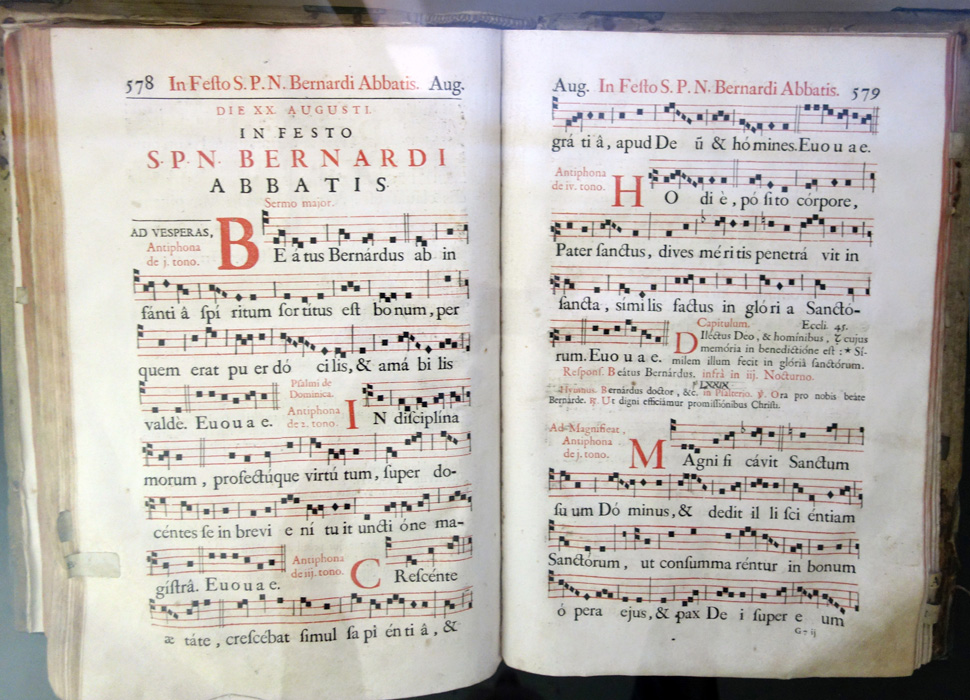 578 In Feſto S. P. N. Bernardi Abbatis. Aug.
DIE XX. AUGUSTI.
IN FESTO
S. P. N. BERNARDI
ABBATIS.
Sermo major.
AD VESPERAS,
Antiphona
de j. tono.
BE á tus Bernárdus ab in
fánti â ſpí ritum ſortítus eſt bonum, per
quem erat pu er dó ci lis, & amá bi lis
valdè. Euouae.
Pſalmi de
Dominica.
Antiphona
de 2. tono.
IN diſciplína
morum, profectúque virtú tum, ſuper do-
céntes ſe in brevi e ní tu it uncti óne ma-
giſtrâ. Euouae.
Antiphona
de iij. tono.
CReſcénte
æ táte, creſcébat ſimul ſa pi én ti â, &
Aug. In Feſto S. P. N. Bernardi Abbatis. 579
grá ti â, apud De ū & hómines. Euouae.
Antiphona
de iv. tono.
HO di è, pó ſito córpore,
Pater ſanctus, dives mé ri tis penetrá vit in
ſancta, ſími lis factus in gló ri a Sanctó-
rum. Euouae.
Capitulum. Eccli. 45.
DIléctus Deo, & hominíbus, cujus
memória in benedictióne eſt : * Sí-
milem illum fecit in glóriâ ſanctórum.
Reſponſ. Beátus Bernárdus. infrà in iij. Nocturno.
LXXIX
Hymnus. Bernárdus doctor, &c. in Pſalterio. ℣. Ora pro nobis beáte
Bernárde. ℟. Ut digni efficiámur promiſſiónibus Chriſti.
Ad Magnificat,
Antiphona
de j. tono.
MAgni fi cávit Sanctum
ſu um Dó minus, & dedit il li ſci éntiam
Sanctórum, ut conſumma réntur in bonum
ó pera ejus, & pax De i ſuper e um
G 7 ij